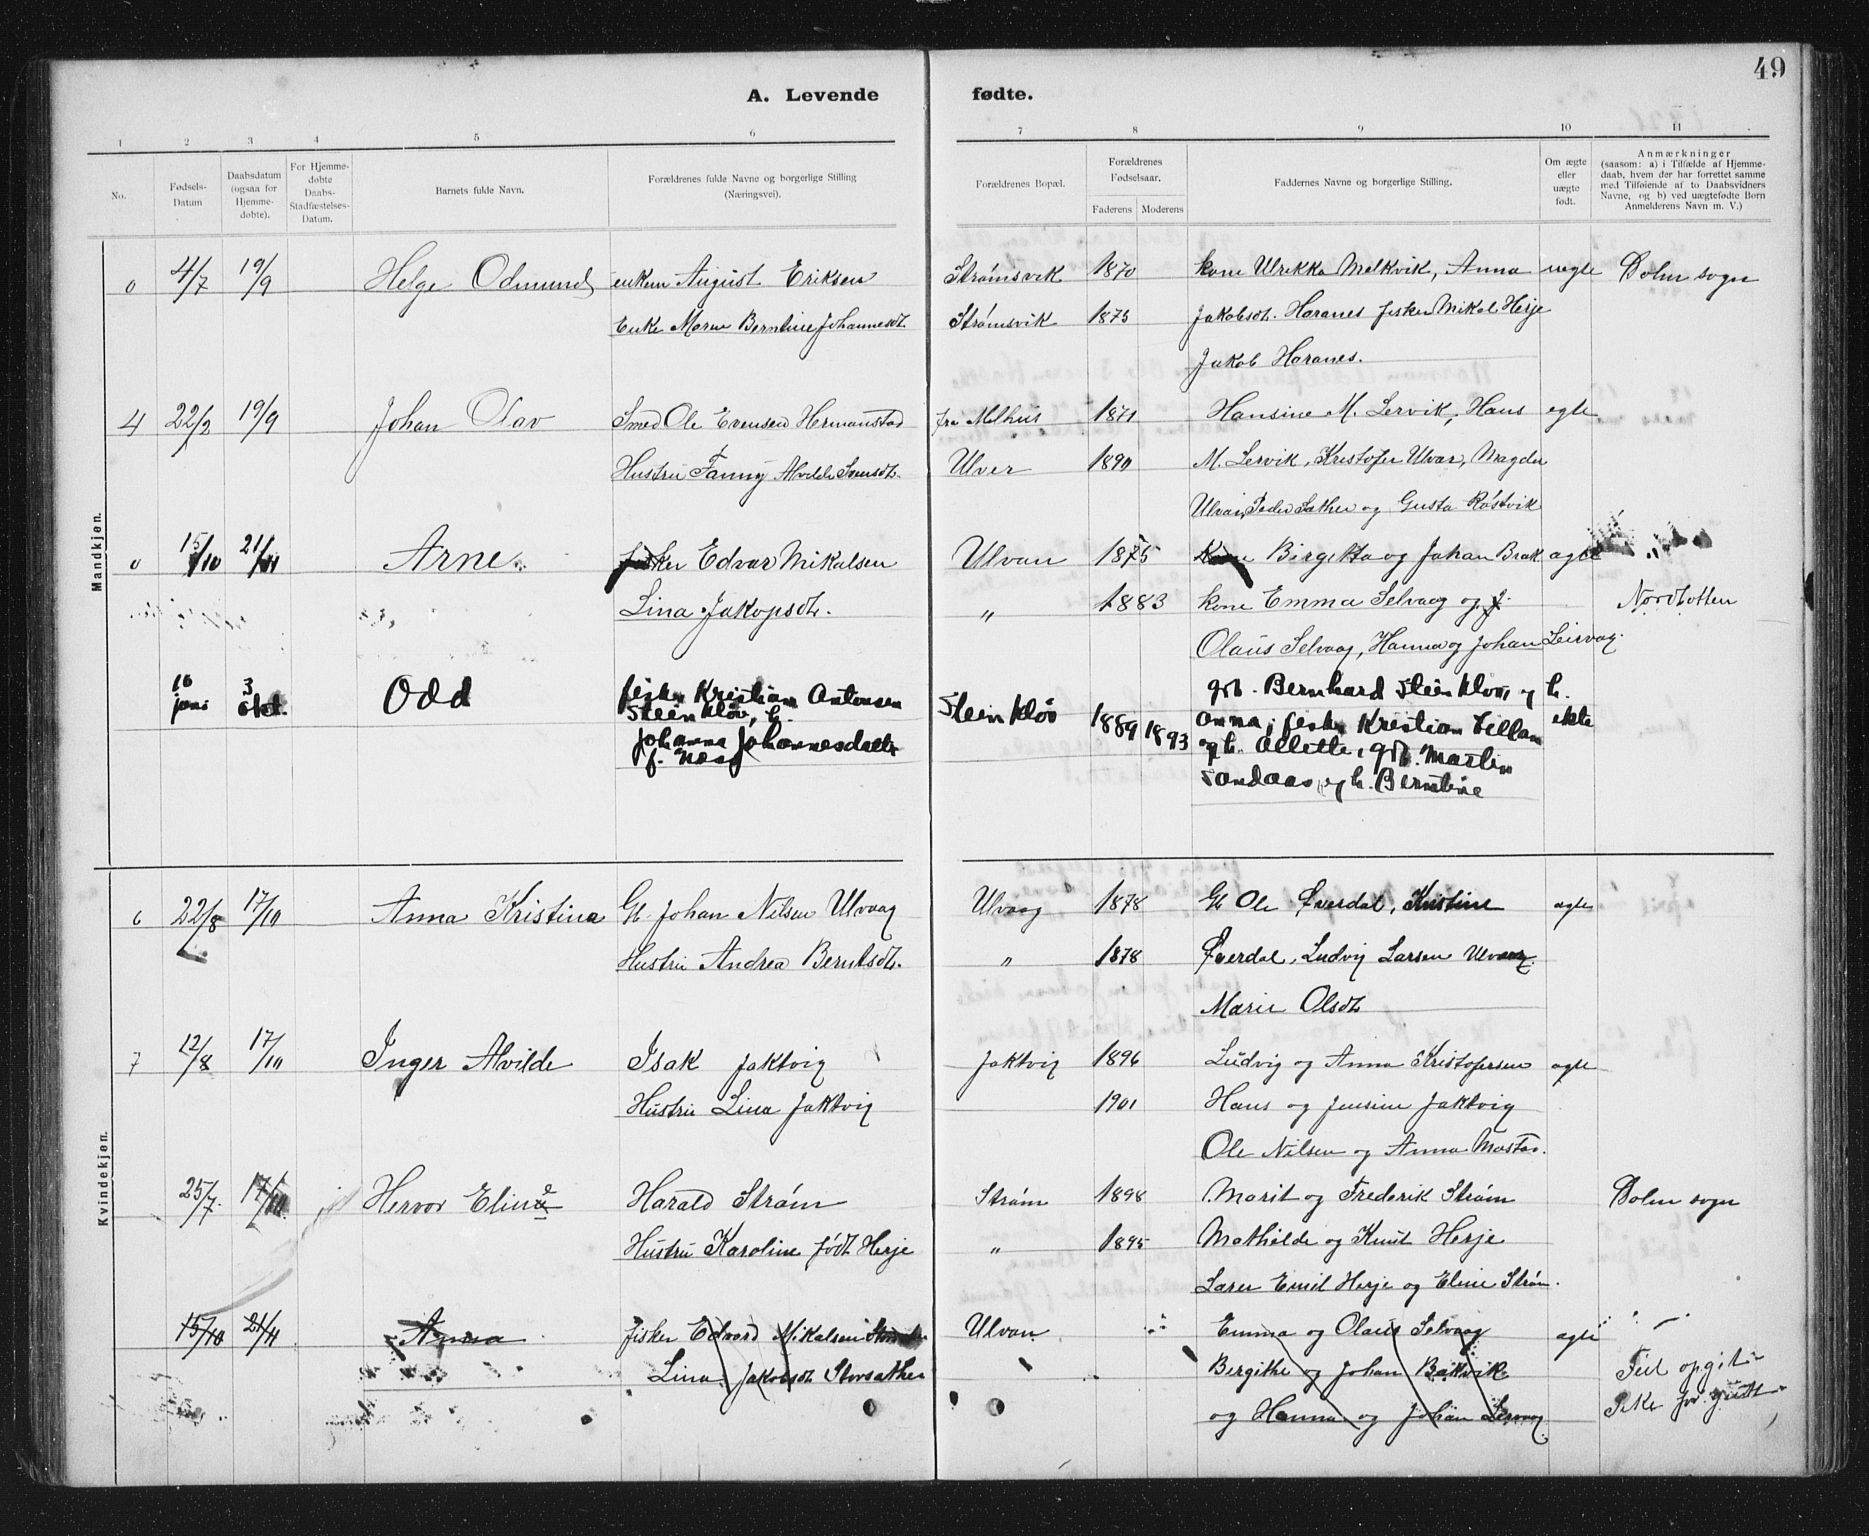 49
A. Levende fødte.
1 2 3 4 5 6 7 8 9 10 11
No.
Fødsels-Datum
Daabsdatum (ogsaa for Hjemme-døbte).
For Hjemme-døbte Daabs-Stadfæstelses-Datum.
Barnets fulde Navn.
Forældrenes fulde Navne og borgerlige Stilling (Næringsvei).
Forældrenes Bopæl.
Forældrenes Fødselsaar.
Faderens Moderens
Faddernes Navne og borgerlige Stilling.
Om ægte eller uægte født.
Anmærkninger (saasom: a) i Tilfælde af Hjemme-daab, hvem der har forrettet samme med Tilføiende af to Daabsvidners Navne, og b) ved uægtefødte Børn Anmelderens Navn m. V.)
Mandkjøn.
0 4/7 19/9 Helge Odmund enkem August Eriksen Strømsvik 1870 kone Ulrikka Melkvik, Anna uegte Dolm sogn
Enke Maren Berntine Johannesdt. Strømsvik 1875 Jakobsdt. Haranes fisker Mikal Herje
Jakob Haranes.
4 22/2 19/9 Johan Olav Smed Ole Evensen Hermanstad fra Melhus 1871 Hansine M. Lervik, Hans egte
Hustru Fanny Alvilde Ulver 1890 M. Lervik, Kristofer Ulvar, Magda
Ulvan, Peder Sæther og Gusta Røstvik
0 15/10 21/11 Arne fisker Edvar Mikalsen Ulvan 1875 Kone Birgitta og Johan Bak agte "
Lina Jakopsdt. " 1883 kone Emma Selvaag og
Olaus Selvaag, Hanna og Johan Leirvag.
16 juni 3 okt. Odd fisker Kristian Antonsen Steinkløv, h. Steinkløv 1889 1893 gbr. Bernhard Steinklov, og h. ekte
Johanna Johannesdatter f. Næss Anna, fisker Kristian
og h. Ollette, gbr. Martin
Sandaas, og h. Berntine
Kvindekjøn.
6 22/8 17/10 Anna Kristina G. Johan Nilsen Ulvaag Ulvaag 1878 G Ole Øverdal, Kristine agte
Hustru Andrea Berntsdt. " 1878 Øverdal, Ludvig Larsen Ulvaag.
Marie Olsdt
7 12/8 17/10 Inger Alvilde Isak Jaktvig Jaktvig 1896 Ludvig og Anna Kristofersen agte
Hustru Lina Jaktvig 1901 Hans og Jensine Jaktvig
Ole Nilsen og Anna Mastad.
25/7 17/10 Hervor Eline Harald Strøm Strøm 1898 Marit og Frederik Strøm Dolm sogn
Hustru Karoline født Herje " 1895 Mathilde og Knut Herje
Laren Emil Herje og Eline Strøm.
15/10 21/11 Anna fisker Edvard Mikalsen Ulvan Emma og Olaus Selvaag agte
Lina Jakobsdt Storsæther Bergithe og Johan Bakvik Feil opgit
og Hanna og Johan Lervag Ikke